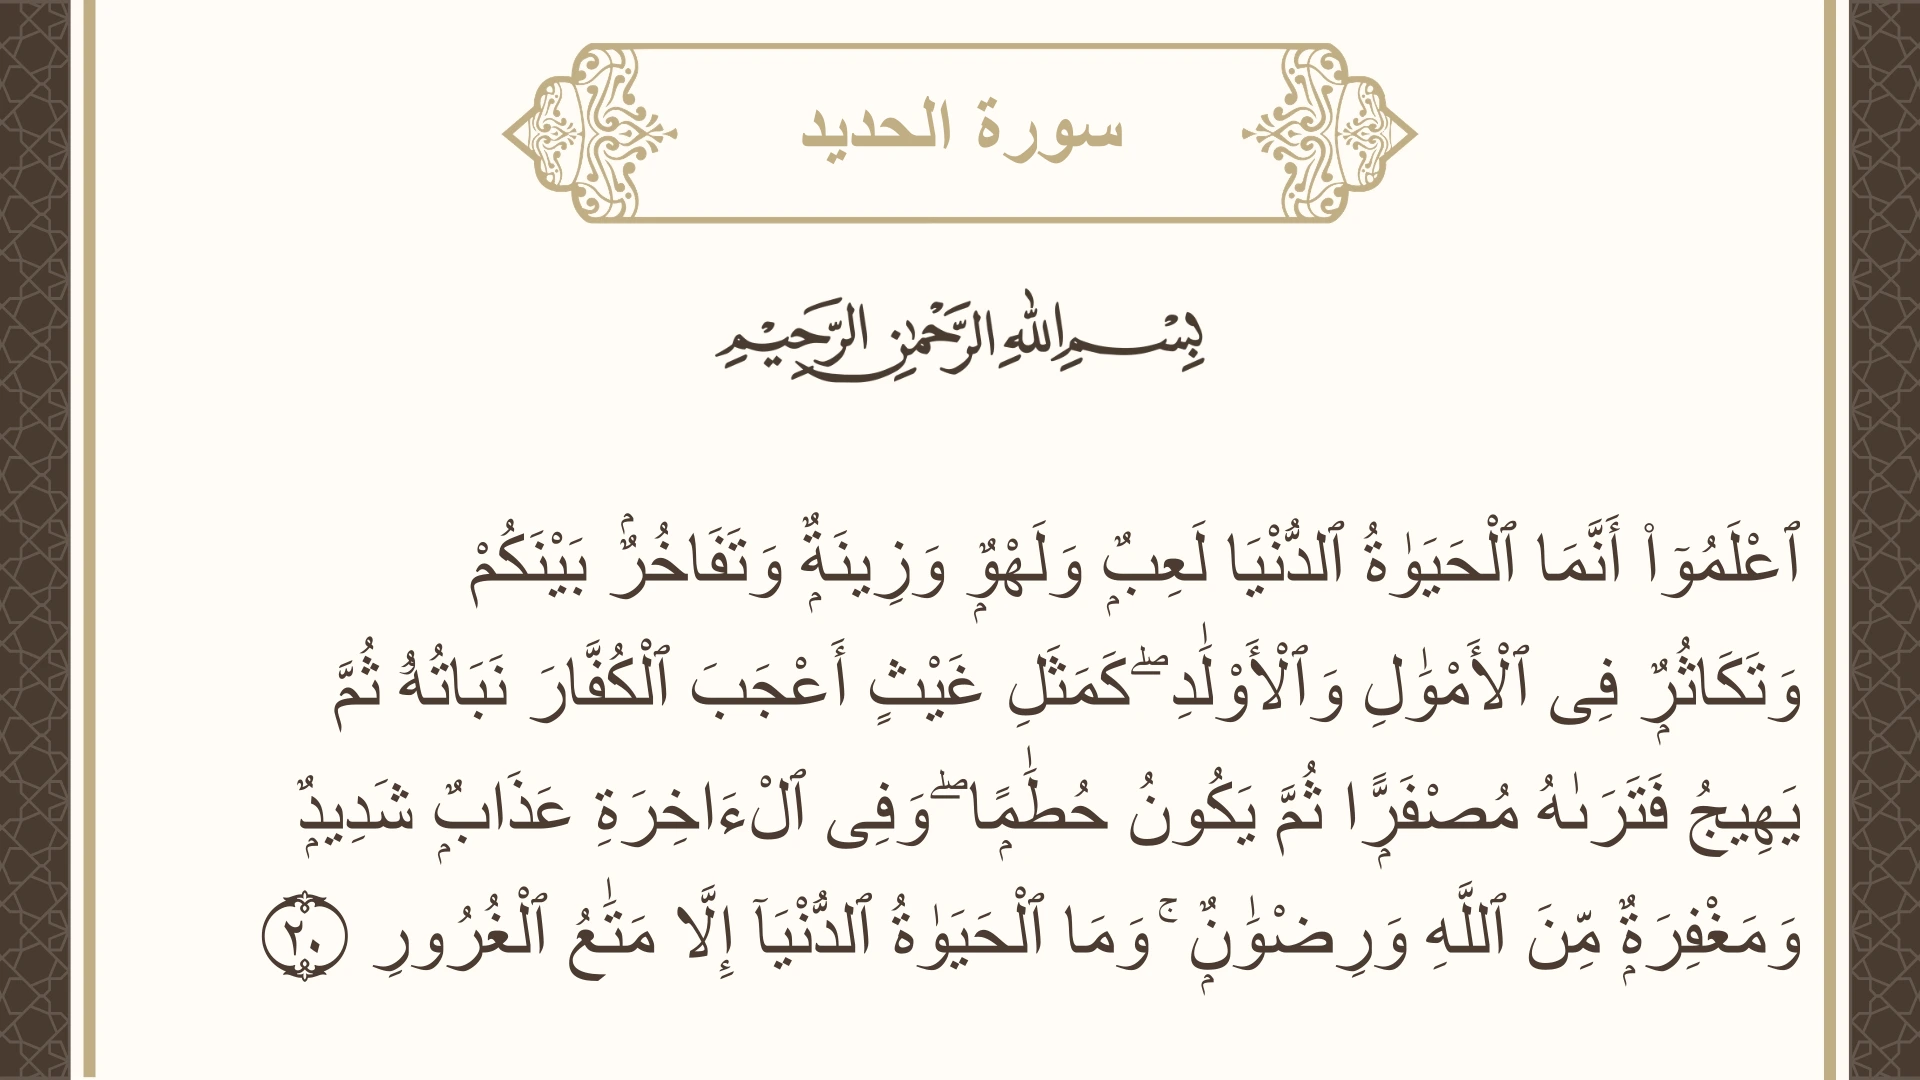 سورة الحديد
بِسْمِ اللهِ الرَّحْمٰنِ الرَّحِيْمِ
ٱعْلَمُوٓا۟ أَنَّمَا ٱلْحَيَوٰةُ ٱلدُّنْيَا لَعِبٌۭ وَلَهْوٌۭ وَزِينَةٌۭ وَتَفَاخُرٌۢ بَيْنَكُمْ
وَتَكَاثُرٌۭ فِى ٱلْأَمْوَٰلِ وَٱلْأَوْلَٰدِ ۖ كَمَثَلِ غَيْثٍ أَعْجَبَ ٱلْكُفَّارَ نَبَاتُهُۥ ثُمَّ
يَهِيجُ فَتَرَىٰهُ مُصْفَرًّۭا ثُمَّ يَكُونُ حُطَٰمًۭا ۖ وَفِى ٱلْءَاخِرَةِ عَذَابٌۭ شَدِيدٌۭ
وَمَغْفِرَةٌۭ مِّنَ ٱللَّهِ وَرِضْوَٰنٌۭ ۚ وَمَا ٱلْحَيَوٰةُ ٱلدُّنْيَآ إِلَّا مَتَٰعُ ٱلْغُرُورِ ٢٠